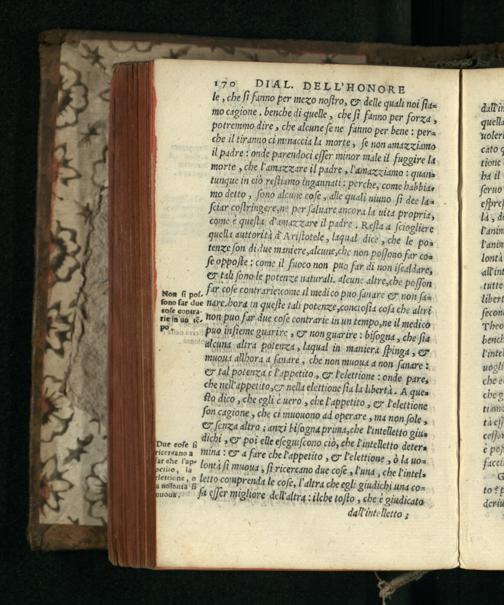 170 DIAL. DELL'HONORE
le, che si fanno per mezo nostro, & delle quali noi sia-
mo cagione. benche di quelle, che si fanno per forza,
potremmo dire, che alcune se ne fanno per bene: per-
che il tiranno ci minaccia la morte, se non amazziamo
il padre: onde parendoci esser minor male il fuggire la
morte, che l'amazzare il padre, l'amazziamo: quan-
tunque in ciò restiamo ingannati: perche, come habbia-
mo detto, sono alcune cose, alle quali niuno si dee la-
sciar costringere, ne per saluare ancora la vita propria,
come è questa d'amazzare il padre. Resta a sciogliere
quella auttorità d'Aristotele, laqual dice, che le po-
tenze son di due maniere, alcune, che non possono far co-
se opposte: come il fuoco non puo far di non iscaldare,
& tali sono le potenze naturali. alcune altre, che posson
far cose contrarie: come il medico puo sanare & non sa-
nare. hora in queste tali potenze, conciosia cosa che altri
non puo far due cose contrarie in un tempo, ne il medico
puo insieme guarire, & non guarire: bisogna, che sia
alcuna altra potenza, laqual in maniera spinga, &
muoua allhora a sanare, che non muoua a non sanare:
& tal potenza è l'appetito, & l'elettione: onde pare,
che nell'appetito, & nella elettione stia la libertà. A que-
sto dico, che egli è uero, che l'appetito, & l'elettione
son cagione, che ci muouono ad operare, ma non sole,
& senza altro; anzi bisogna prima, che l'intelletto giu-
dichi, & poi elle eseguiscono ciò, che l'intelletto deter-
mina: & a fare che l'appetito, & l'elettione, ò la uo-
lontà si muoua, si ricercano due cose, l'una, che l'intel-
letto comprenda le cose, l'altra che egli giudichi una co-
sa esser migliore dell'altra: ilche tosto, che è giudicato
dall'intelletto;
Non si pos-
sono far due
cose contra-
rie in un tē-
po.
Due cose si
ricercano a
far che l'ap-
petito, la
elettione, o
a uolontà si
muoua.